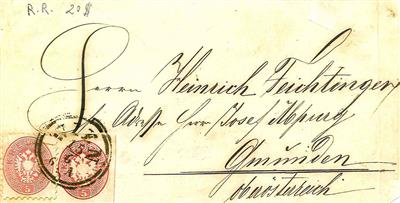 R.R. 20 $
Herrn Heinrich Feichtinger
Adresse Herr Josef
Gmünden
Oberösterreich
5 5